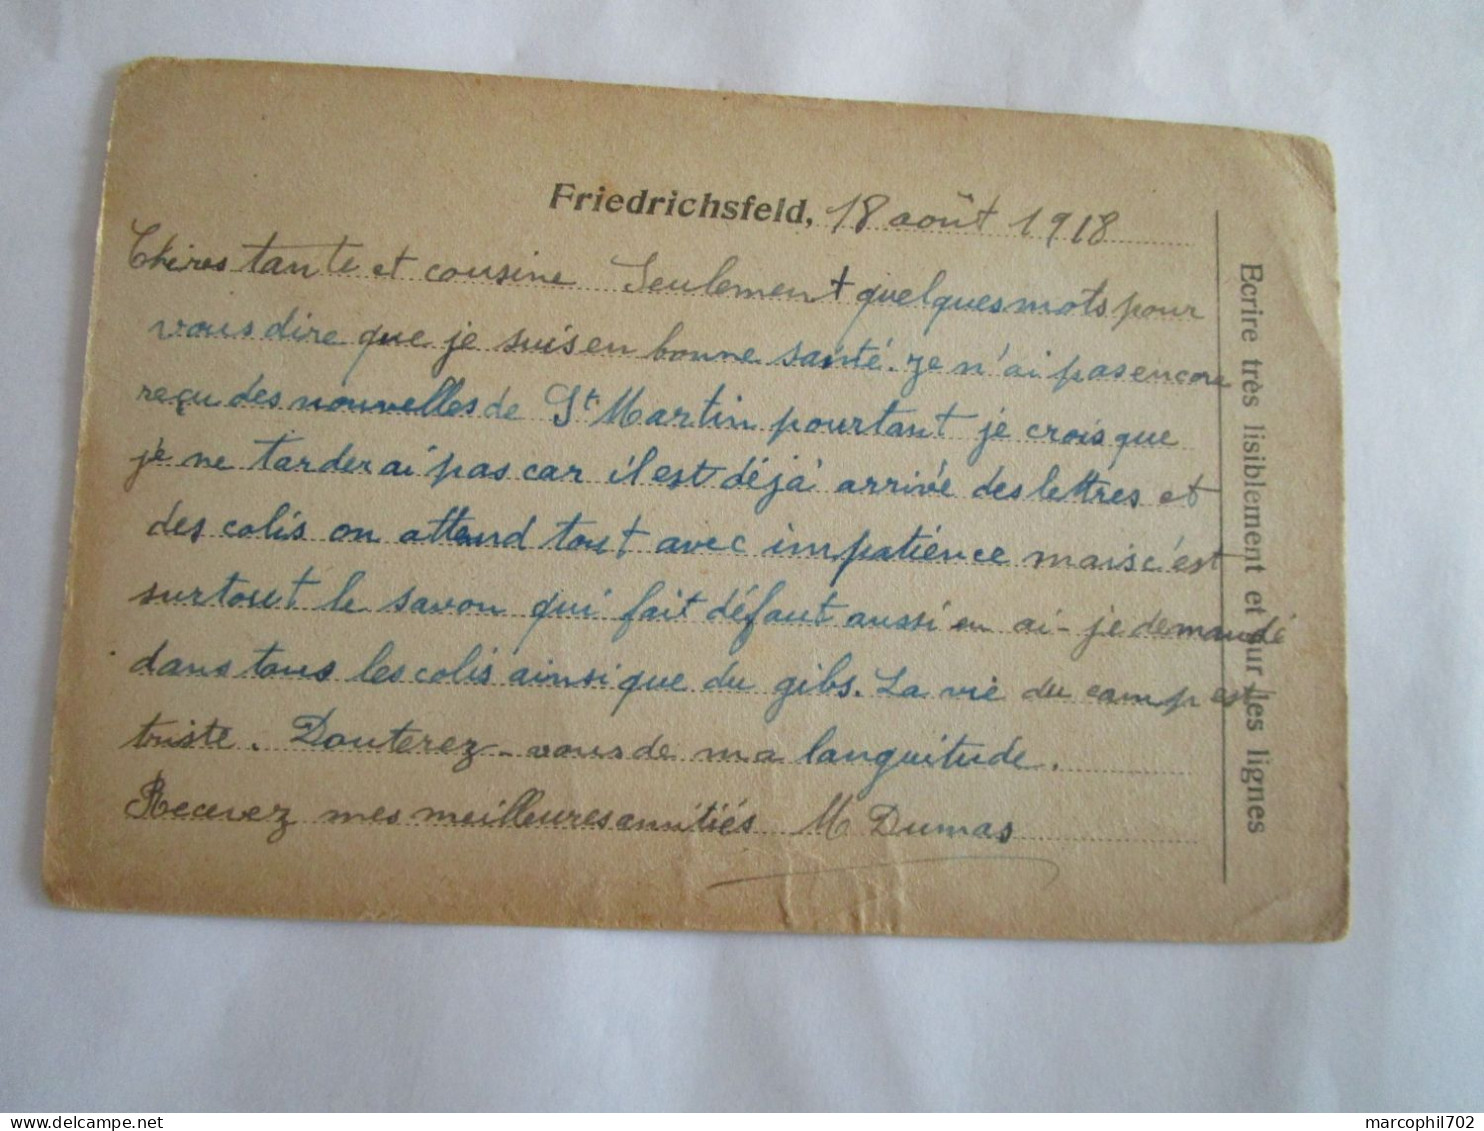 Friedrichsfeld, 18 août 1918
Chères tante et cousine Seulement quelques mots pour
vous dire que je suis en bonne santé. je n'ai pas encore
reçu des nouvelles de St Martin pourtant je crois que
je ne tarderai pas car il est déjà arrivé des lettres et
des colis on attend tout avec impatience mais c'est
surtout le savon qui fait défaut aussi en ai-je demandé
dans tous les colis ainsi que du gibs. La vie du camp est
triste. Douterez-vous de ma languitude.
Recevez mes meilleures amitiés M Dumas
Ecrire très lisiblement et sur les lignes
marcophil702